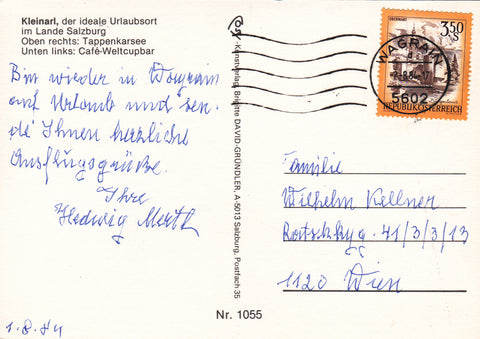 Kleinarl, der ideale Urlaubsort
im Lande Salzburg
Oben rechts: Tappenkarsee
Unten links: Café-Weltcupbar
Bin wieder in Wagrain
auf Urlaub und sen-
de Ihnen herzliche
Ausflugsgrüße.
Ihre
Hedwig
1.8.84
Kunstverlag, Brigitte DAVID-GRÜNDLER, A-5013 Salzburg, Postfach 35
Nr. 1055
3.50
S
WAGRAIN
5602
REPUBLIK ÖSTERREICH
Familie
Wilhelm Kellner
41/3/3/13
1120 Wien